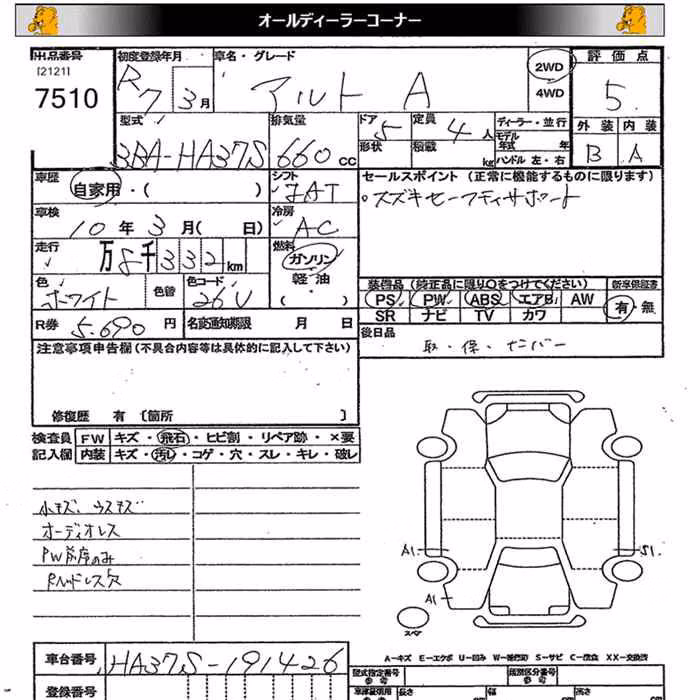 オールディーラーコーナー
出品番号
[2121]
7510
初度登録年月
R7 3月
車名・グレード
アルト A
2WD
4WD
評価点
5
外装 内装
B A
型式
3BA-HA37S
排気量
660 cc
ドア
5
形状
定員
4人
積載
kg
ディーラー・並行
モデル年式 年
ハンドル 左・右
車歴
自家用・( )
シフト
車検
10年3月( 日)
冷房
AC
走行
万8千332km
燃料
ガソリン
軽油
( )
色
ホワイト
色替
色コード
26U
R券
5,690円
名変通知期限 月 日
セールスポイント (正常に機能するものに限ります)
スズキセーフティサポート
装備品 (純正品に限り○をつけてください)
PS PW ABS エアB AW
SR ナビ TV カワ
新車保証書
有・無
後日品
取・保・ナンバー
注意事項申告欄(不具合内容等は具体的に記入して下さい)
修復歴 有 〔箇所 〕
検査員記入欄
FW キズ・飛石・ヒビ割・リペア跡・×要
内装 キズ・汚レ・コゲ・穴・スレ・キレ・破レ
小キズ、ウスキズ
オーディオレス
PW前席のみ
A1
S1
A1
スペア
A-キズ E-エクボ U-凹み W-補修跡 S-サビ C-腐食 XX-交換済
車台番号
HA37S-191426
登録番号
型式指定番号
参考
類別区分番号
参考
長さ
幅
高さ